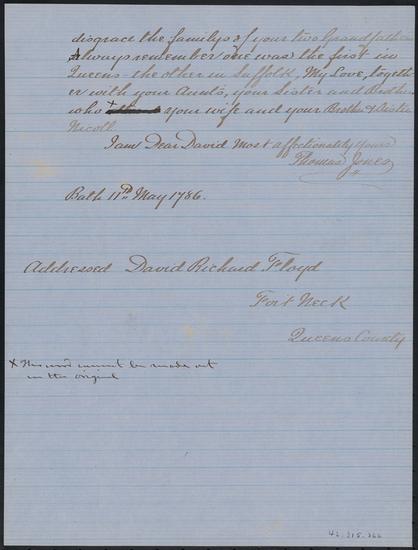 disgrace the familys of your two Grandfathers
Always remember one was the first in
Queens - the other in Suffolk, My Love, togeth
er with your Aunts, your Sister and Brother
who x your wife and your Brother & Sister
Nicoll.
I am Dear David Most affectionately yours
Thomas Jones
Bath 11th May 1786.
Addressed David Richard Floyd
Fort Neck
Queens County
x This word cannot be made out
in the original
42.315.366